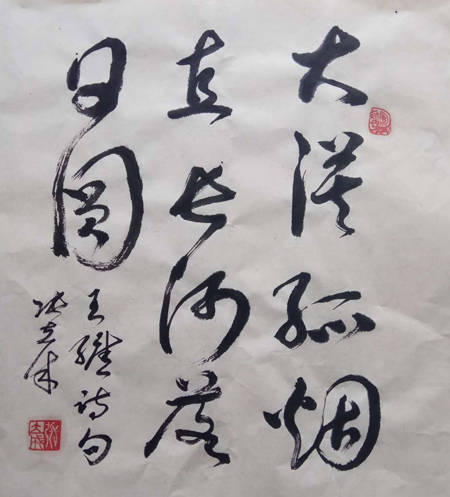 大漠孤烟
直长河落
日圆
王维诗句